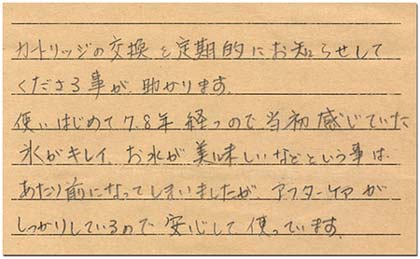 カートリッジの交換を定期的にお知らせして
くださる事が、助かります。
使いはじめて7.8年経つので当初感じていた
氷がキレイ、お水が美味しいなどという事は、
あたり前になってしまいましたが、アフターケアが
しっかりしているので安心して使っています。